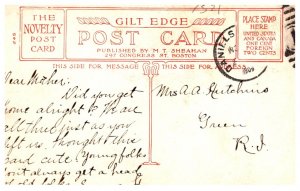 1521
THE
NOVELTY
POST
CARD
GILT EDGE
POST CARD
PUBLISHED BY M. T. SHEAHAN
297 CONGRESS ST. BOSTON.
THIS SIDE FOR MESSAGE
THIS SIDE FOR MESSAGE
PLACE STAMP
HERE
UNITED STATES
AND CANADA
ONE CENT
FOREIGN
TWO CENTS
Dear Mother:
Did you get
home alright to
all just as you
left us. thought this
card cute. Young folks
don't always get a head
Mrs. A. A. Hutchins
Green
R.I.